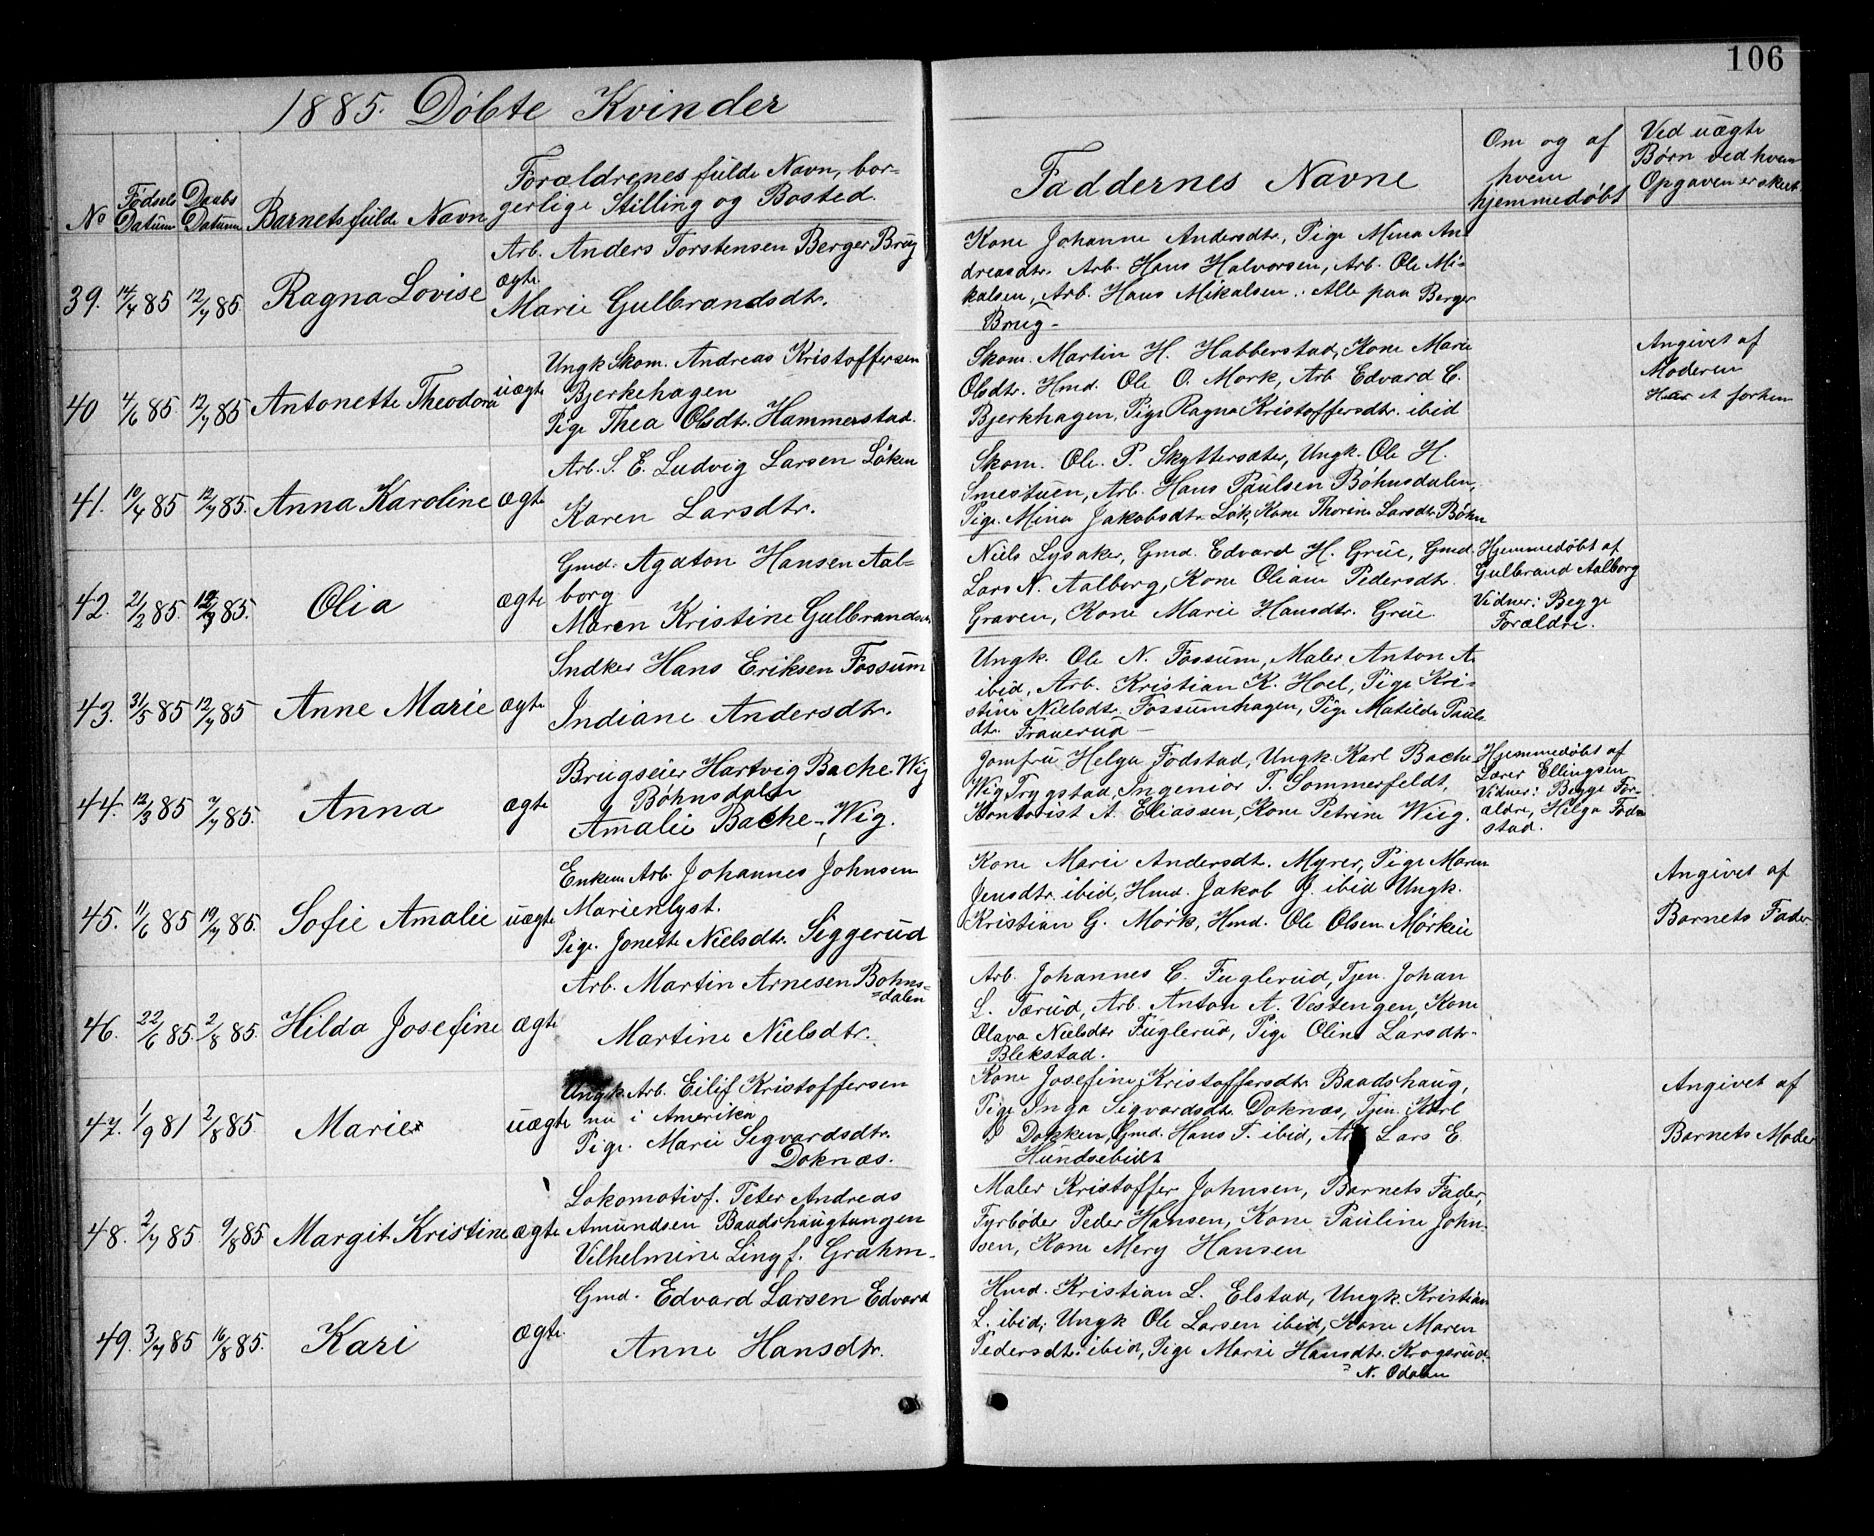 106
1885. Döbte Kvinder
No
Födsels
Datum
Daabs
Datum
Barnets fulde Navn
Forældrenes fulde Navn, bor-
gerlige Stilling og Bosted.
Faddernes Navne
Om og af
hvem
hjemmedöbt
Ved uægte
Børn ved hvem
Opgaven er skeet
39. 14/4 85 12/7 85. Ragna Lovise ægte
Arb. Anders Torstensen Berger Brug
Marie Gulbrandsdtr.
Kone Johanne Andersdtr, Pige Mina An-
dreasdtr. Arb. Hans Halvorsen, Arb. Ole Mi-
kalsen, Arb. Hans Mikalsen.. Alle paa Berger
Brug-
40 4/6 85 12/7 85 Antonette Theodora uægte
Ungk Skom. Andreas Kristoffersen
Bjerkehagen
Pige Thea Olsdtr. Hammerstad.
Skom. Martin H. Habberstad, Kone Marie
Olsdtr. Hmd. Ole O. Mork, Arb. Edvard C.
Bjerkhagen, Pige Ragna Kristoffersdtr. ibid
Angivet af
Moderen
Har et forhen
41. 10/4 85 12/7 85. Anna Karoline ægte
Arb. S. E. Ludvig Larsen Löken
Karen Larsdtr.
Skom. Ole. P. Skyttersæter, Ungk. Ole H.
Smestuen, Arb. Hans Paulsen Böhnsdalen,
Pige. Mina Jakobsdtr. Løk, Kone Thorine Larsdtr. Böhn
42. 21/2 85. 85. Olia ægte
Gmd. Agaton Hansen Aal-
borg
Maren Kristine Gulbrandsdtr
Niels Lysaker, Gmd. Edvard H. Grüe, Gmd.
Lars N. Aalborg, Kone Oliane Pedersdtr.
Graven, Kone Marie Hansdtr. Grüe.
Hjemmedöbt af
Gulbrand Aalborg
Vidner: Begge
Forældre.
43. 31/5 85 12/7 85 Anne Marie ægte
Indker Hans Eriksen Fossum
Indiane Andersdtr.
Ungk. Ole N. Fossum, Maler Anton A.
ibid, Arb. Kristian K. Hoel, Pige Kri-
stine Nielsdtr. Fossumhagen, Pige Matilde Pauls
dtr. Frauerud-
44. 12/3 85 7/7 85. Anna ægte
Brugseier Hartvig Bache Wig
Böhnsdalen
Amalie Bache-Wig.
Jomfru Helga Fodstad, Ungk. Karl Bache
Wig Trygstad, Ingeniör T. Sommerfeldt,
Kontorist A. Eliassen, Kone Petrine Wiig.
Hjemmedöbt af
Lærer Ellingsen
Vidner: Begge For-
ældre, Helga Fod-
stad.
45. 11/6 85 19/7 85. Sofie Amalie uægte
Enkem. Arb. Johannes Johnsen
Marienlyst.
Pige. Jonette Nielsdtr. Siggerud
Kone Marie Andersdtr. Myrer, Pige Maren
Jensdtr. ibid, Hmd. Jakob J. ibid Ungk.
Kristian G. Mörk, Hmd. Ole Olsen Mörkeie
Angivet af
Barnets Fader.
46. 22/6 85. 2/8 85. Hilda Josefine ægte
Arb. Martin Arnesen Bohns-
=dalen
Martine Nielsdtr.
Arb. Johannes C. Fuglerud, Tjen. Johan
L. Tærud, Arb. Anton A. Vestengen, Kone
Olava Nielsdtr Fuglerud, Pige Oline Larsdtr-
Blekstad.
47. 1/9 81 2/8 85. Marie uægte
Ungk. Arb. Eilif Kristoffersen
nu i Amerika
Pige. Marie Segvardsdtr.
Doknæs.
Kone Josefine Kristoffersdtr. Baadshaug,
Pige Inga Sigvardsdtr. Doknæs, Tjen. Karl
Dokken, Gmd. Hans T. ibid, Arb Lars E
Hundsebidt
Angivet af
Barnets Moder
48. 2/7 85. 9/8 85. Margit Kristine ægte
Lokomotivf. Peter Andreas
Amundsen Baadshaugtangen
Vilhelmine Ling f. Grahm.
Maler Kristoffer Johnsen, Barnets Fader,
Fyrböder Peder Hansen, Kone Pauline John-
sen, Kone Mery Hansen
49. 3/7 85 16/8 85. Kari ægte.
Gmd. Edvard Larsen Edvard
Anne Hansdtr.
Hmd. Kristian L. Elstad, Ungk. Kristian
L. ibid, Ungk Ole Larsen ibid, Kone Maren
Pedersdtr. ibid, Pige Marie Hansdtr. Krogsrud.
N. Odalen